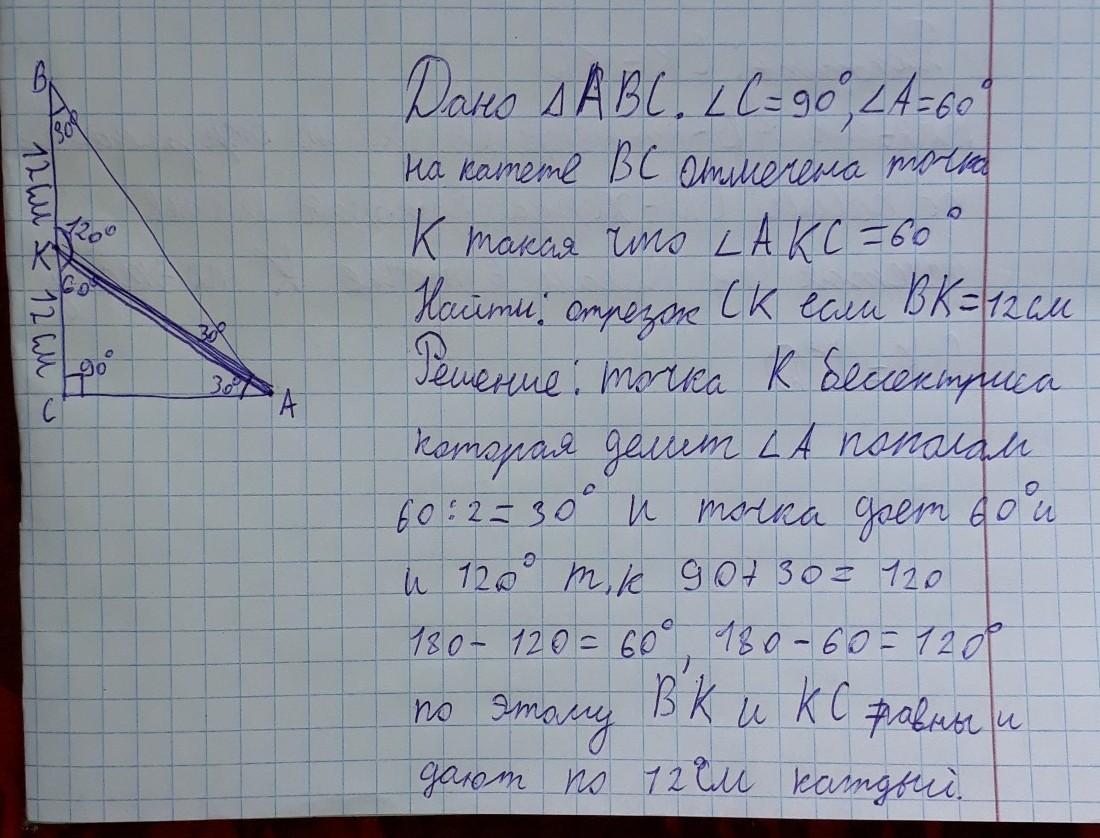 B
30°
12см
120°
K
60°
12см
30°
90°
30°
C
A
Дано △ABC. ∠C=90°, ∠A=60°
на катете BC отмечена точка
K такая что ∠AKC=60°
Найти: отрезок CK если BK=12см
Решение: точка K бессектриса
которая делит ∠A пополам
60:2=30° и точка дает 60° и
и 120° т.к 90+30=120
180-120=60°, 180-60=120°
по этому BK и KC равны и
дают по 12см каждый.